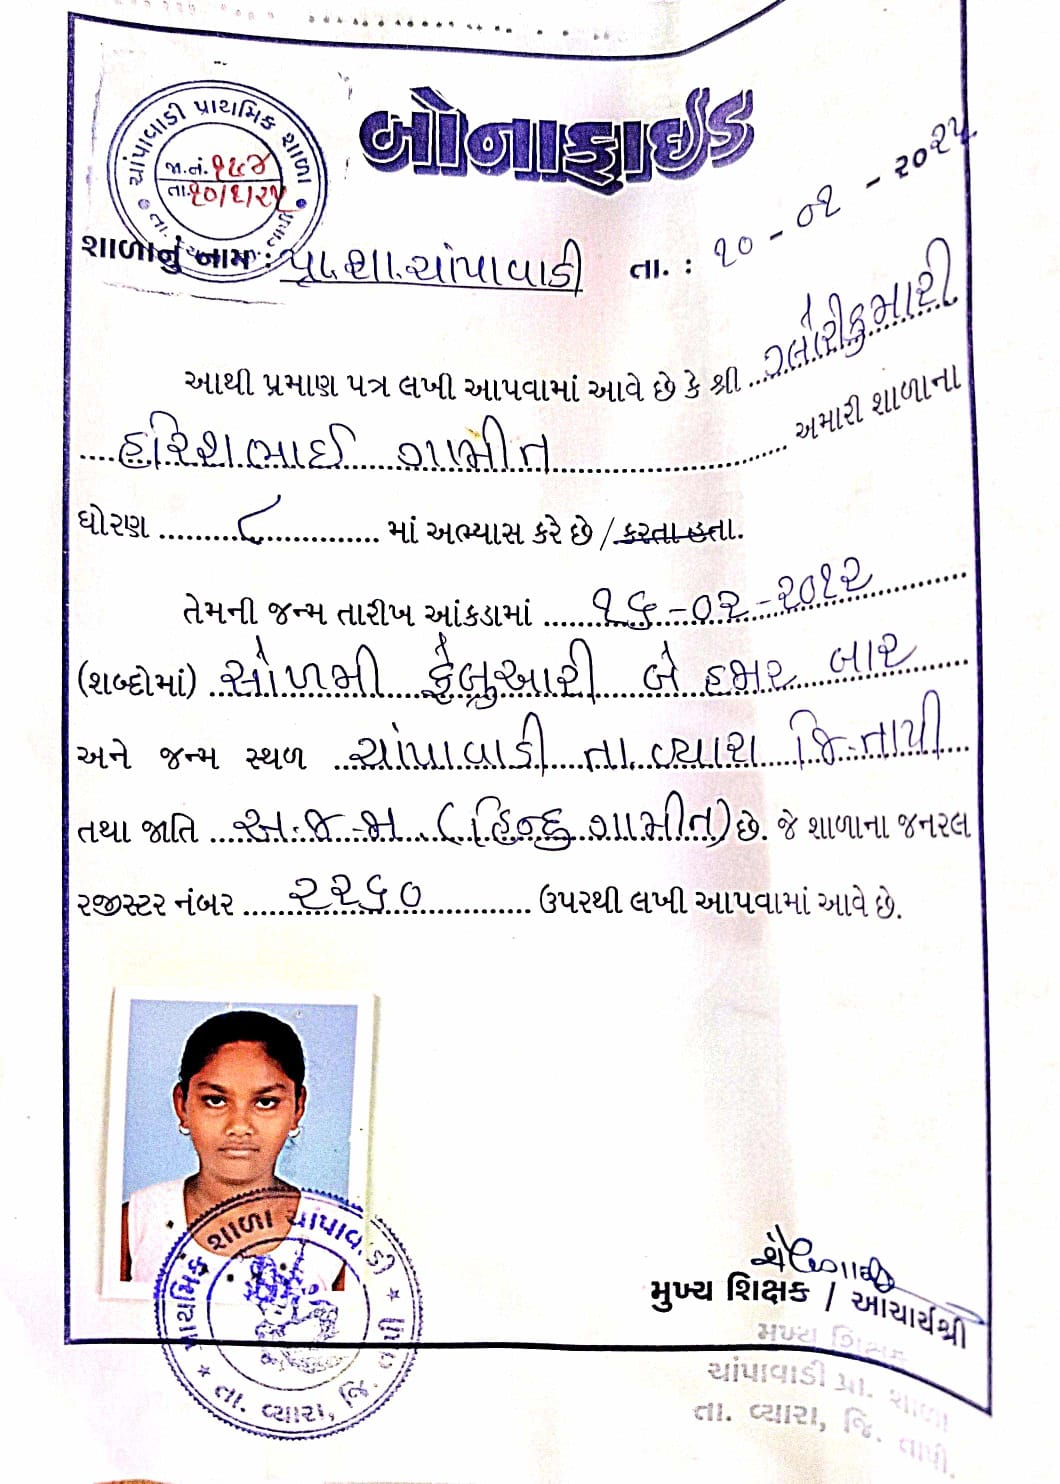 ચાંપાવાડી પ્રાથમિક શાળા
જા.નં. ૧૫૪
તા. ૧૦/૬/૨૫
બોનાફાઇડ
શાળાનું નામ : પ્રા.શા.ચાંપાવાડી તા. : ૧૦ - ૦૧ - ૨૦૨૫
આથી પ્રમાણ પત્ર લખી આપવામાં આવે છે કે શ્રી ગ્લોરીકુમારી
હરિશભાઈ ગામીત અમારી શાળાના
ધોરણ ૮ માં અભ્યાસ કરે છે / કરતા હતા.
તેમની જન્મ તારીખ આંકડામાં ૧૬-૦૨-૨૦૧૨
(શબ્દોમાં) સોળમી ફેબ્રુઆરી બે હજાર બાર
અને જન્મ સ્થળ ચાંપાવાડી તા.વ્યારા જિ-તાપી
તથા જાતિ અ.જ.જા (હિન્દુ ગામીત) છે. જે શાળાના જનરલ
રજીસ્ટર નંબર ૨૨૬૦ ઉપરથી લખી આપવામાં આવે છે.
પ્રાથમિક શાળા ચાંપાવાડી
તા. વ્યારા, જિ. તાપી
મુખ્ય શિક્ષક / આચાર્યશ્રી
મુખ્ય શિક્ષક
ચાંપાવાડી પ્રા. શાળા
તા. વ્યારા, જિ. તાપી.